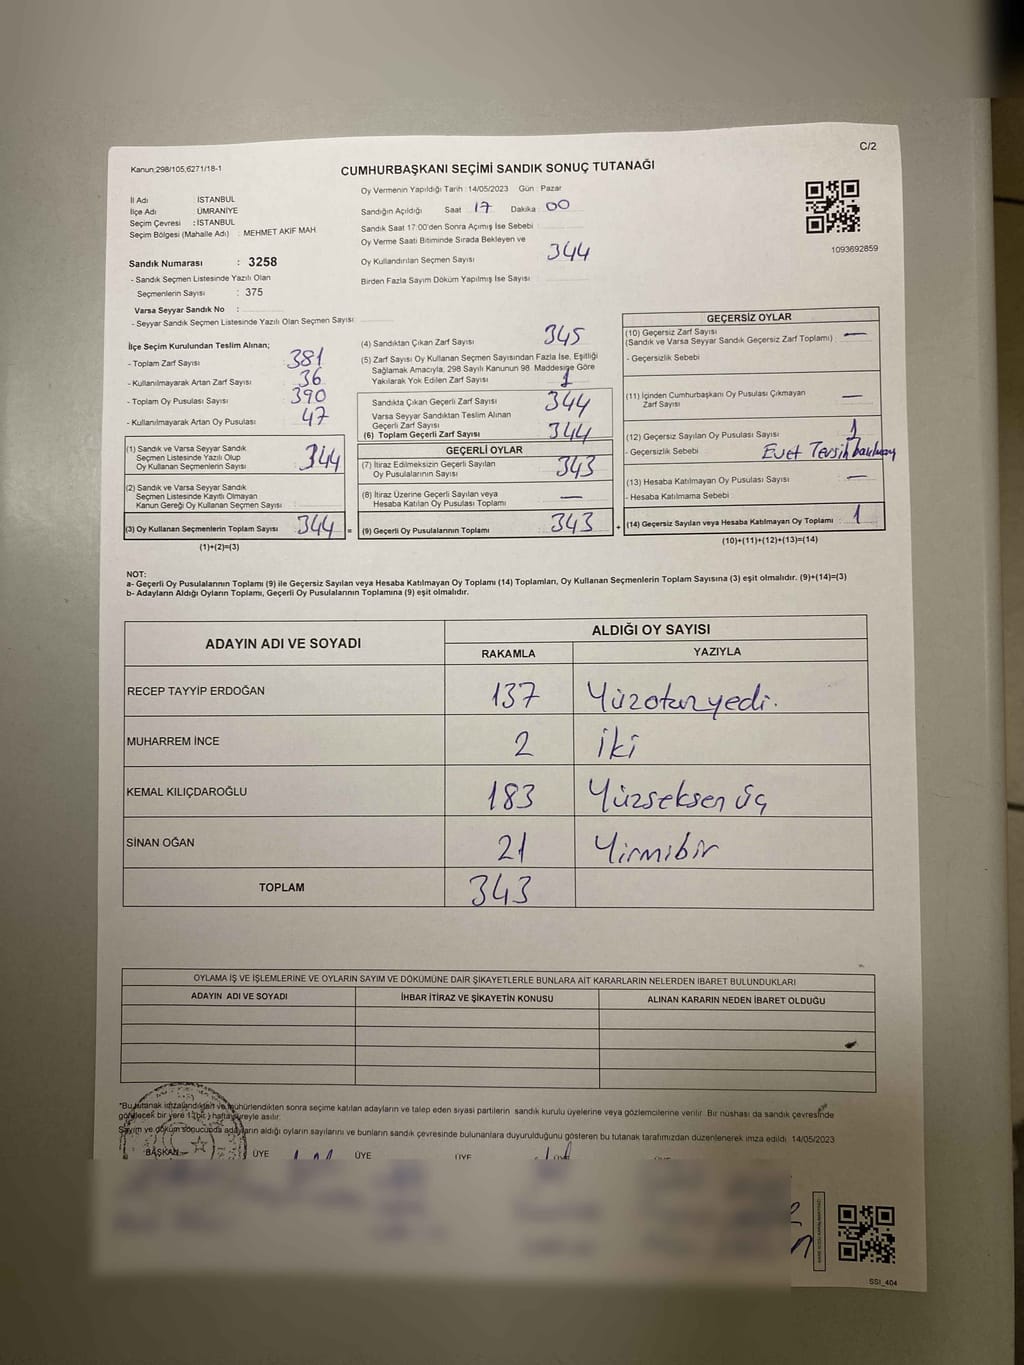 C/2
Kanun;298/105;6271/18-1
CUMHURBAŞKANI SEÇİMİ SANDIK SONUÇ TUTANAĞI
İl Adı İSTANBUL
İlçe Adı ÜMRANİYE
Seçim Çevresi : İSTANBUL
Seçim Bölgesi (Mahalle Adı) : MEHMET AKİF MAH.
Sandık Numarası : 3258
- Sandık Seçmen Listesinde Yazılı Olan
Seçmenlerin Sayısı : 375
Varsa Seyyar Sandık No :
- Seyyar Sandık Seçmen Listesinde Yazılı Olan Seçmen Sayısı
Oy Vermenin Yapıldığı Tarih : 14/05/2023 Gün : Pazar
Sandığın Açıldığı Saat 17 Dakika 00
Sandık Saat 17:00'den Sonra Açımış İse Sebebi
Oy Verme Saati Bitiminde Sırada Bekleyen ve
Oy Kullandırılan Seçmen Sayısı 344
Birden Fazla Sayım Döküm Yapılmış İse Sayısı
1093692859
İlçe Seçim Kurulundan Teslim Alınan;
- Toplam Zarf Sayısı 381
- Kullanılmayarak Artan Zarf Sayısı 36
- Toplam Oy Pusulası Sayısı 390
- Kullanılmayarak Artan Oy Pusulası 47
(1) Sandık ve Varsa Seyyar Sandık
Seçmen Listesinde Yazılı Olup
Oy Kullanan Seçmenlerin Sayısı 344
(2) Sandık ve Varsa Seyyar Sandık
Seçmen Listesinde Kayıtlı Olmayan
Kanun Gereği Oy Kullanan Seçmen Sayısı
(3) Oy Kullanan Seçmenlerin Toplam Sayısı 344 =
(1)+(2)=(3)
(4) Sandıktan Çıkan Zarf Sayısı 345
(5) Zarf Sayısı Oy Kullanan Seçmen Sayısından Fazla İse, Eşitliği
Sağlamak Amacıyla, 298 Sayılı Kanunun 98. Maddesine Göre
Yakılarak Yok Edilen Zarf Sayısı 1
Sandıkta Çıkan Geçerli Zarf Sayısı 344
Varsa Seyyar Sandıktan Teslim Alınan
Geçerli Zarf Sayısı
(6) Toplam Geçerli Zarf Sayısı 344
GEÇERLİ OYLAR
(7) İtiraz Edilmeksizin Geçerli Sayılan
Oy Pusulalarının Sayısı 343
(8) İtiraz Üzerine Geçerli Sayılan veya
Hesaba Katılan Oy Pusulası Toplamı —
(9) Geçerli Oy Pusulalarının Toplamı 343 +
GEÇERSİZ OYLAR
(10) Geçersiz Zarf Sayısı —
(Sandık ve Varsa Seyyar Sandık Geçersiz Zarf Toplamı)
- Geçersizlik Sebebi
(11) İçinden Cumhurbaşkanı Oy Pusulası Çıkmayan
Zarf Sayısı —
(12) Geçersiz Sayılan Oy Pusulası Sayısı 1
- Geçersizlik Sebebi Evet Tercih
(13) Hesaba Katılmayan Oy Pusulası Sayısı —
- Hesaba Katılmama Sebebi
(14) Geçersiz Sayılan veya Hesaba Katılmayan Oy Toplamı 1
(10)+(11)+(12)+(13)=(14)
NOT:
a- Geçerli Oy Pusulalarının Toplamı (9) ile Geçersiz Sayılan veya Hesaba Katılmayan Oy Toplamı (14) Toplamları, Oy Kullanan Seçmenlerin Toplam Sayısına (3) eşit olmalıdır. (9)+(14)=(3)
b- Adayların Aldığı Oyların Toplamı, Geçerli Oy Pusulalarının Toplamına (9) eşit olmalıdır.
ADAYIN ADI VE SOYADI ALDIĞI OY SAYISI
RAKAMLA YAZIYLA
RECEP TAYYİP ERDOĞAN 137 Yüzotuzyedi.
MUHARREM İNCE 2 iki
KEMAL KILIÇDAROĞLU 183 Yüzseksen üç
SİNAN OĞAN 21 Yirmibir
TOPLAM 343
OYLAMA İŞ VE İŞLEMLERİNE VE OYLARIN SAYIM VE DÖKÜMÜNE DAİR ŞİKAYETLERLE BUNLARA AİT KARARLARIN NELERDEN İBARET BULUNDUKLARI
ADAYIN ADI VE SOYADI İHBAR İTİRAZ VE ŞİKAYETİN KONUSU ALINAN KARARIN NEDEN İBARET OLDUĞU
*Bu tutanak imzalandıktan ve mühürlendikten sonra seçime katılan adayların ve talep eden siyasi partilerin sandık kurulu üyelerine veya gözlemcilerine verilir. Bir nüshası da sandık çevresinde
görülecek bir yere 1 (bir) hafta süreyle asılır.
Sayım ve döküm sonucunda adayların aldığı oyların sayılarını ve bunların sandık çevresinde bulunanlara duyurulduğunu gösteren bu tutanak tarafımızdan düzenlenerek imza edildi. 14/05/2023
BAŞKAN ÜYE ÜYE ÜYE
SSİ_404